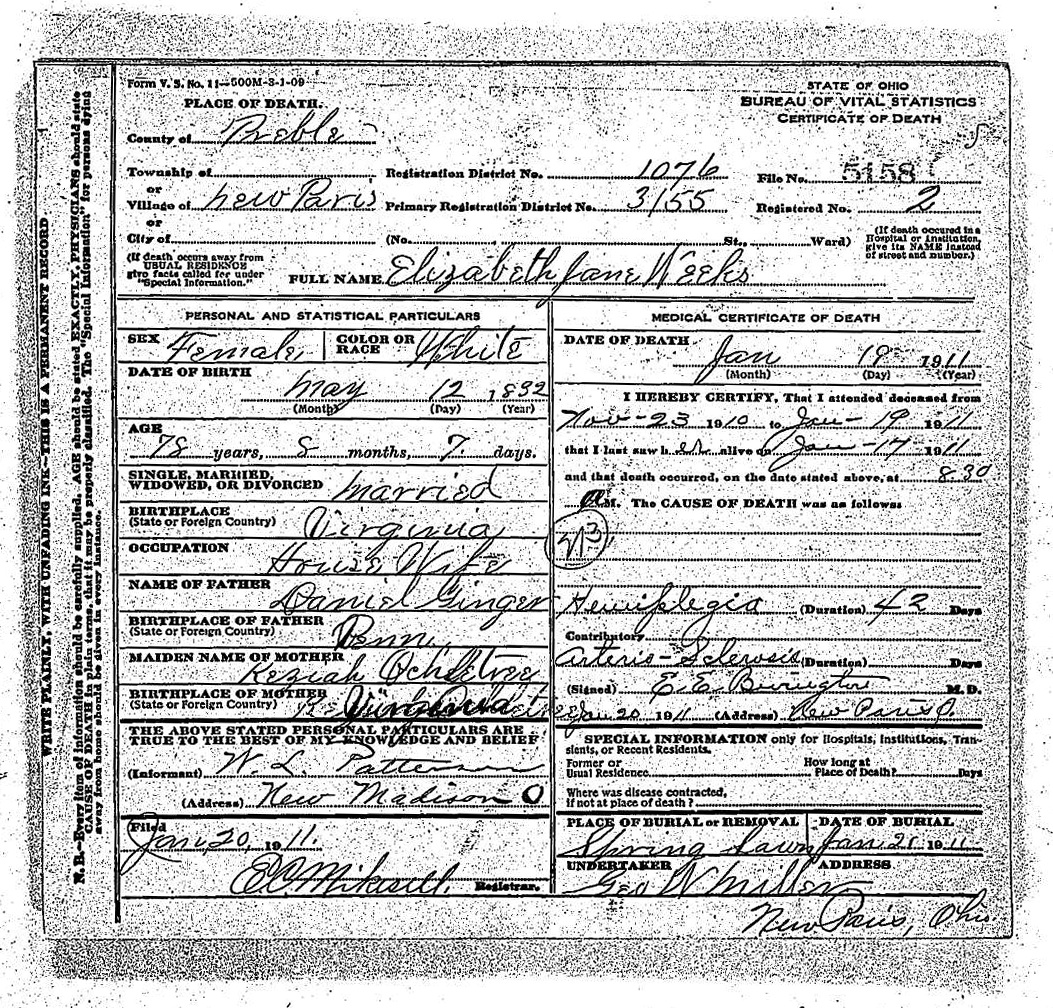 Form V. S. No. 11—500M-3-1-09
STATE OF OHIO
BUREAU OF VITAL STATISTICS
CERTIFICATE OF DEATH
PLACE OF DEATH.
County of Preble
Township of
or
Village of New Paris
or
City of
Registration District No. 1076
Primary Registration District No. 3155
(No. St., Ward)
File No. 5158
Registered No. 2
(If death occured in a
Hospital or Institution,
give its NAME instead
of street and number.)
(If death occurs away from
USUAL RESIDENCE
give facts called for under
"Special Information."
FULL NAME Elizabeth Jane Weeks
PERSONAL AND STATISTICAL PARTICULARS
SEX Female COLOR OR RACE White
DATE OF BIRTH
May 12 1832
(Month) (Day) (Year)
AGE
78 years, 8 months, 7 days.
SINGLE, MARRIED,
WIDOWED, OR DIVORCED Married
BIRTHPLACE
(State or Foreign Country) Virginia
OCCUPATION House Wife
NAME OF FATHER Daniel Ginger
BIRTHPLACE OF FATHER
(State or Foreign Country) Penn.
MAIDEN NAME OF MOTHER Keziah Ochiltree
BIRTHPLACE OF MOTHER
(State or Foreign Country)
THE ABOVE STATED PERSONAL PARTICULARS ARE
TRUE TO THE BEST OF MY KNOWLEDGE AND BELIEF
(Informant) W. L. Patterson
(Address) New Madison O
Filed
Jan 20, 1911
Registrar.
MEDICAL CERTIFICATE OF DEATH
DATE OF DEATH
Jan 19 1911
(Month) (Day) (Year)
I HEREBY CERTIFY, That I attended deceased from
Nov-23 1910 to Jan-19 1911
that I last saw her alive on Jan-17 1911
and that death occurred, on the date stated above, at 8.30
M. The CAUSE OF DEATH was as follows:
Hemiplegia (Duration) 42 Days
Contributory
Arterio-Sclerosis (Duration) Days
(Signed) E. E. M. D.
Jan 20 1911 (Address) New Paris O
SPECIAL INFORMATION only for Hospitals, Institutions, Tran-
sients, or Recent Residents.
Former or
Usual Residence
How long at
Place of Death? Days
Where was disease contracted,
if not at place of death?
PLACE OF BURIAL or REMOVAL
Spring Lawn
DATE OF BURIAL
Jan 21 1911
UNDERTAKER
Geo W Miller
ADDRESS
New Paris, Ohio
WRITE PLAINLY, WITH UNFADING INK—THIS IS A PERMANENT RECORD
N. B.—Every item of information should be carefully supplied. AGE should be stated EXACTLY, PHYSICIANS should state
CAUSE OF DEATH in plain terms, that it may be properly classified. The "Special Information" for persons dying
away from home should be given in every instance.